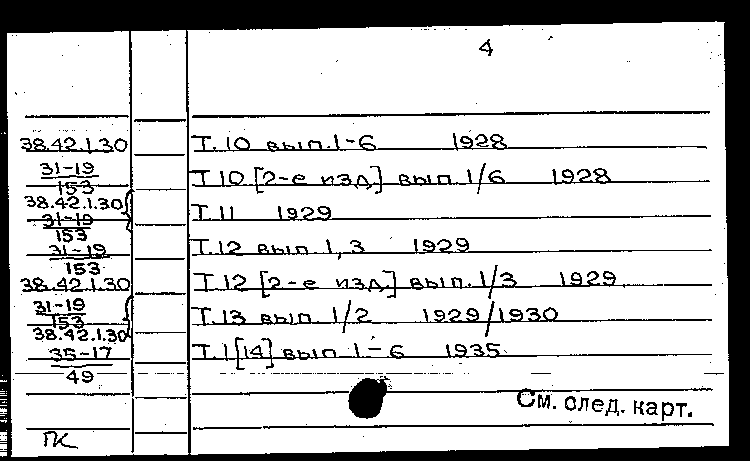 4
38.42.1.30 Т. 10 вып. 1-6 1928
31-19
153 Т 10 [2-е изд.] вып. 1/6 1928
38.42.1.30
31-19 Т. 11 1929
153
31-19 Т. 12 вып. 1, 3 1929
153
38.42.1.30 Т. 12 [2-е изд.] вып. 1/3 1929
31-19
153 Т. 13 вып 1/2 1929/1930
38.42.1.30
35-17 Т. 1 [14] вып 1-6 1935
49
См. след. карт.
ПК